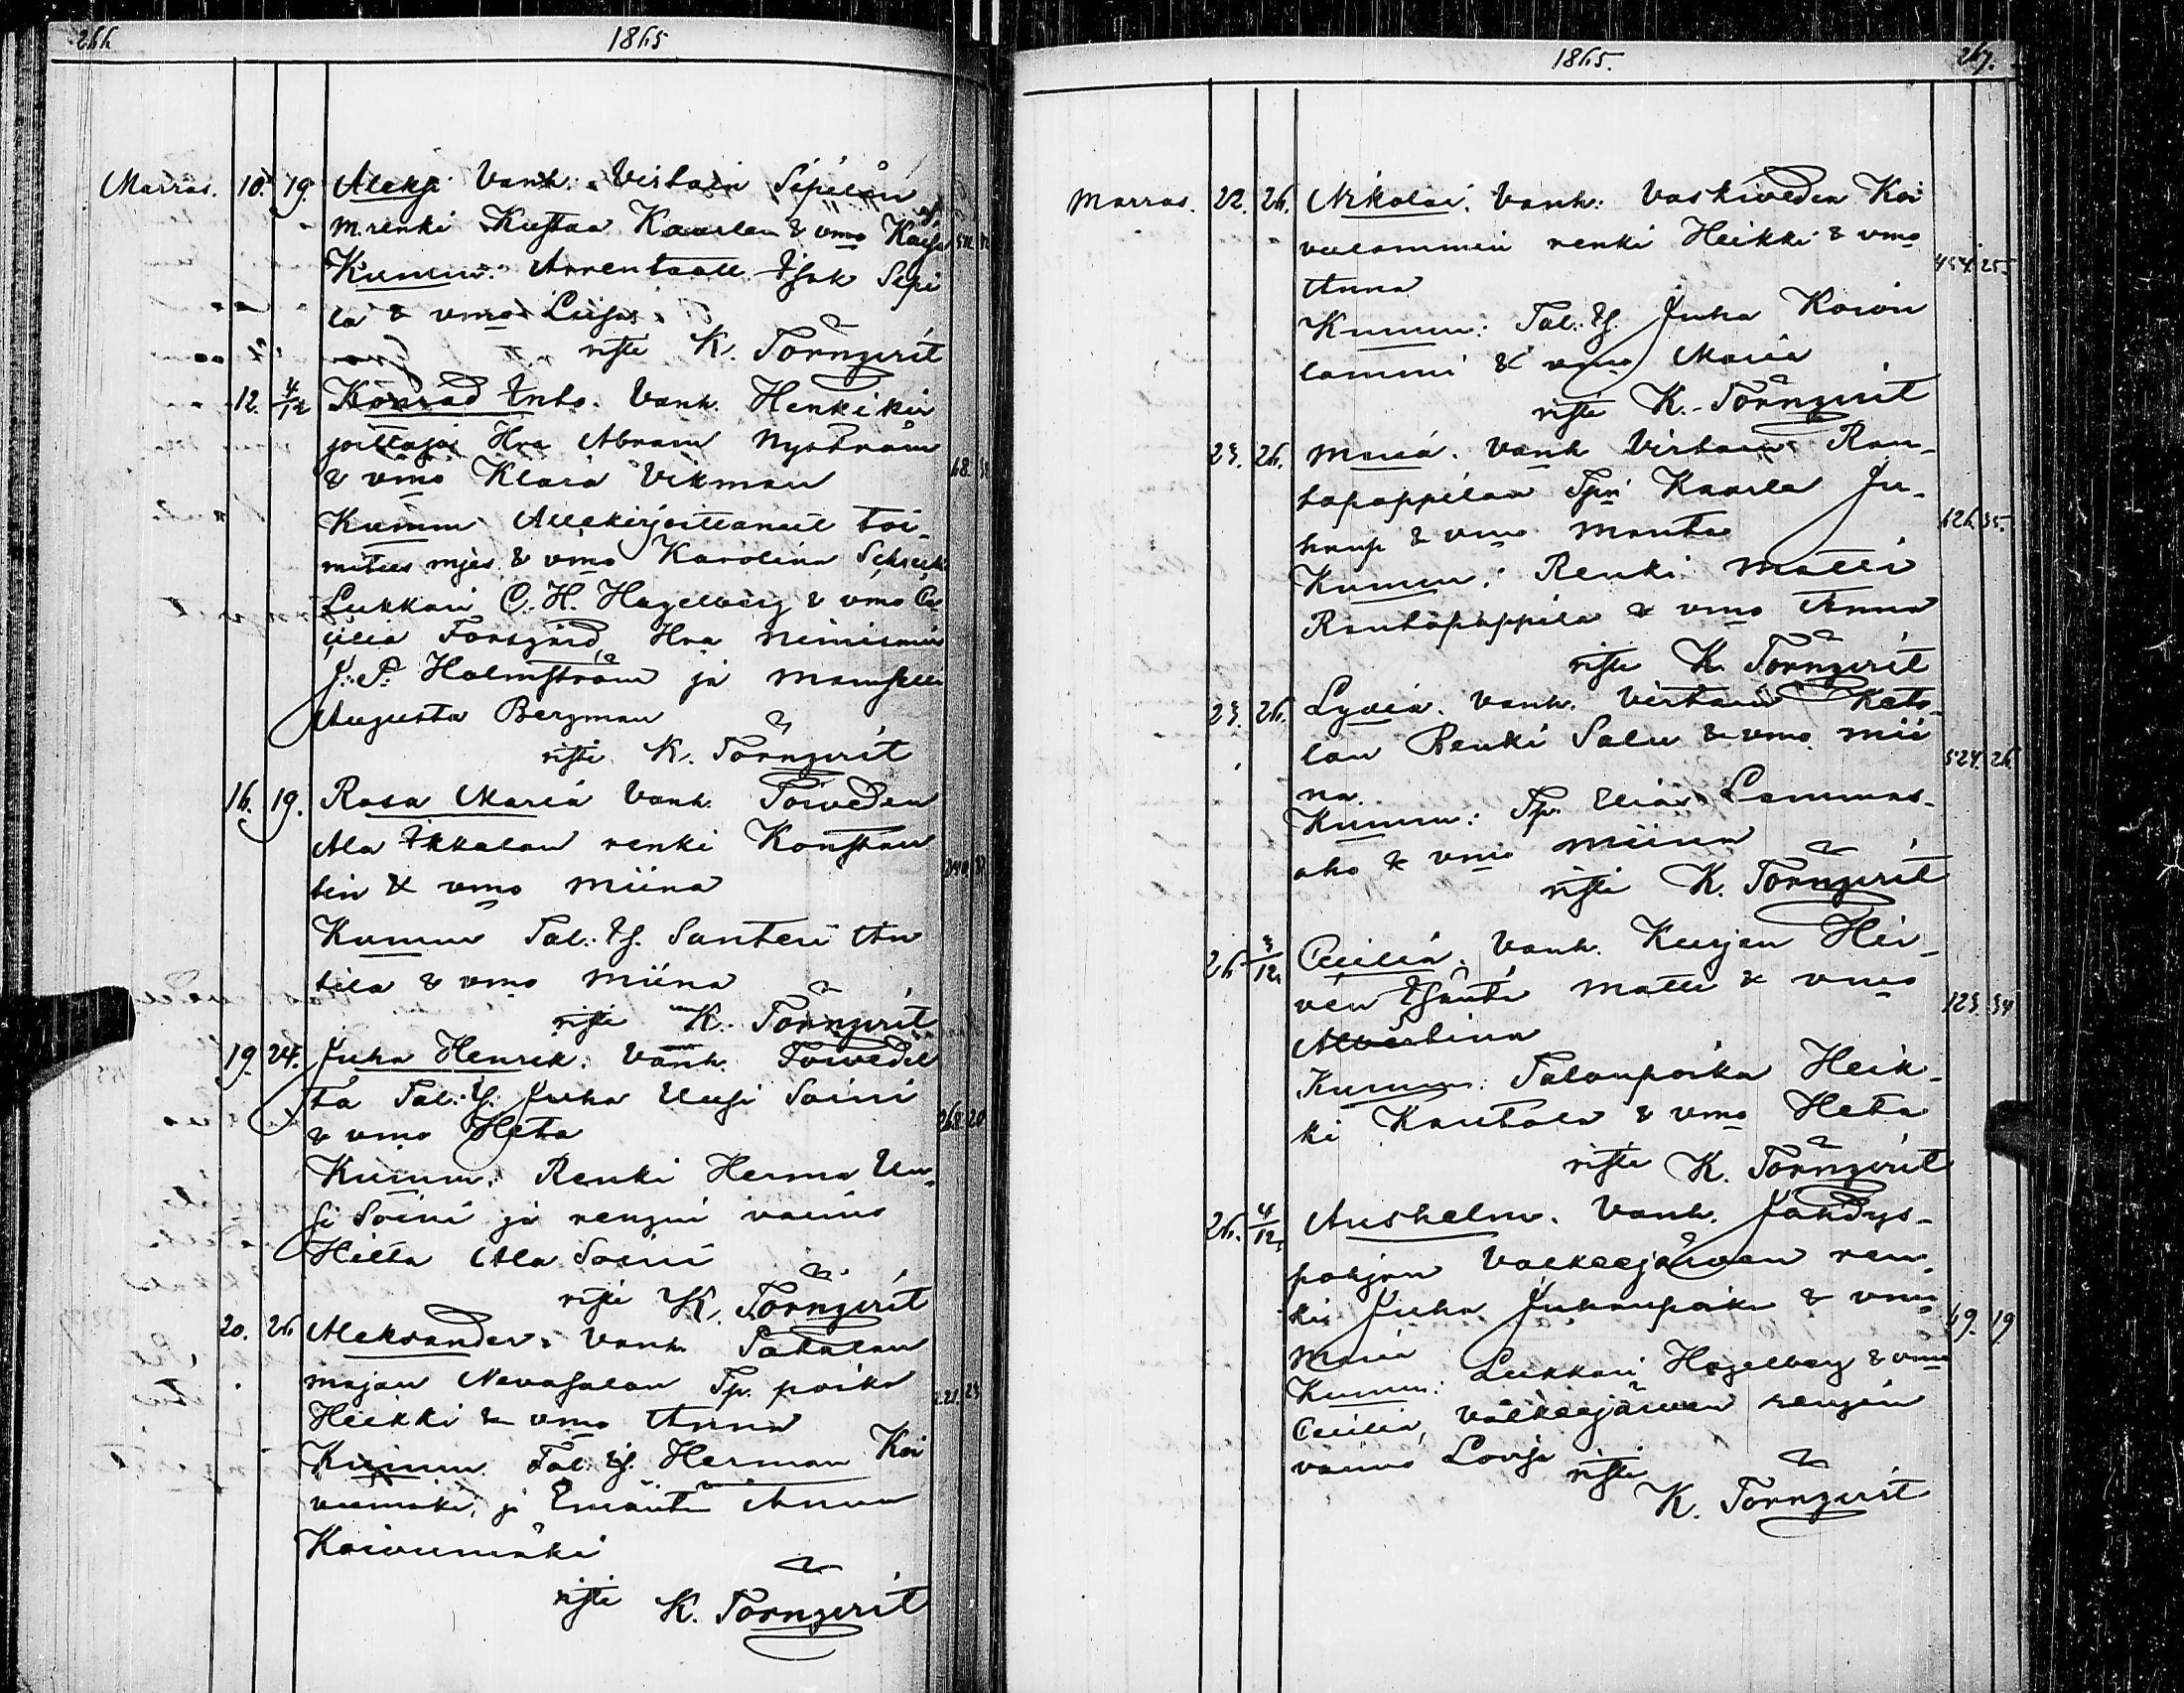 266 1865
Marras. 10. 19. Aleksi Vanh. Virtain Sepilän
m.renki Kustaa Kaarlen & vmo Kaisa
Kumm: Arrentaali Isak Sepi
lä & vmo Liisa
risti K. Törnqvist
12. 4/12 Konrad Into. Vanh. Henkikir
joittaja Hra Abram Nyström
& vmo Klara Vikman 68.
Kumm Allekirjoittanut toi-
mitus mjes & vmo Karolina
Lukkari C. H. Hagelberg & vmo Ce
cilia Forsgård, Hra Nimismies
J. P. Holmström ja Mamselli
Augusta Bergman
risti K. Törnqvist
16. 19. Rosa Maria Vanh. Toiveden
Ala Ikkalan renki Konstan
tin & vmo Miina
Kumm Tal. Is. Santeri An
tila & vmo Miina
risti K. Törnqvist
19. 24. Juha Henrik. Vanh. Toivedel
tä Tal. Is. Juha Uusi Soini
& vmo Heta 268 20
Kumm. Renki Herma Uu-
si Soini ja rengin vaimo
Hilta Ala Soini
risti K. Törnqvist
20. 26 Aleksander. Vanh.
majan Nevasalon Tp. poika
Heikki & vmo Anna
Kumm. Tal. Is. Herman Koi
vumäki, ja Emäntä Anna
Koivumäki
risti K. Törnqvist
1865. 267.
Marras. 22. 26. Nikolai. Vanh: Vaskiveden Koi
vulammin renki Heikki & vmo 454. 25
Anna
Kumm: Tal. Is. Juha Koivu
lammi & vmo Maria
risti K. Törnqvist
23. 26. Maria. Vanh Virtain Ran-
tapappilan Tpri Kaarla Ju-
hanp & vmo Manta 126 35.
Kumm: Renki Matti
Rantapappila & vmo Anna
risti K. Törnqvist
23. 26. Lydia. Vanh. Virtain Keto-
lan Renki Salu & vmo Mii
na. 524. 26
Kumm: Tp. Elias Lammas-
aho & vmo Miina
risti K. Törnqvist
26. 3/12 Cecilia. Vanh. Kurjen Hir-
ven Isäntä Matti & vmo 123 34
Albertina
Kumm: Talonpoika Heik-
ki Kantola & vmo Heta
risti K. Törnqvist
26. 4/12 Anshelm. Vanh. Jähdys-
pohjan Valkeejärven ren-
ki Juha Juhanpoika & vmo 69. 19
Maria
Kumm: Lukkari Hagelberg & vmo
Cecilia, Valkeejärven rengin
vaimo Lovisa risti
K. Törnqvist